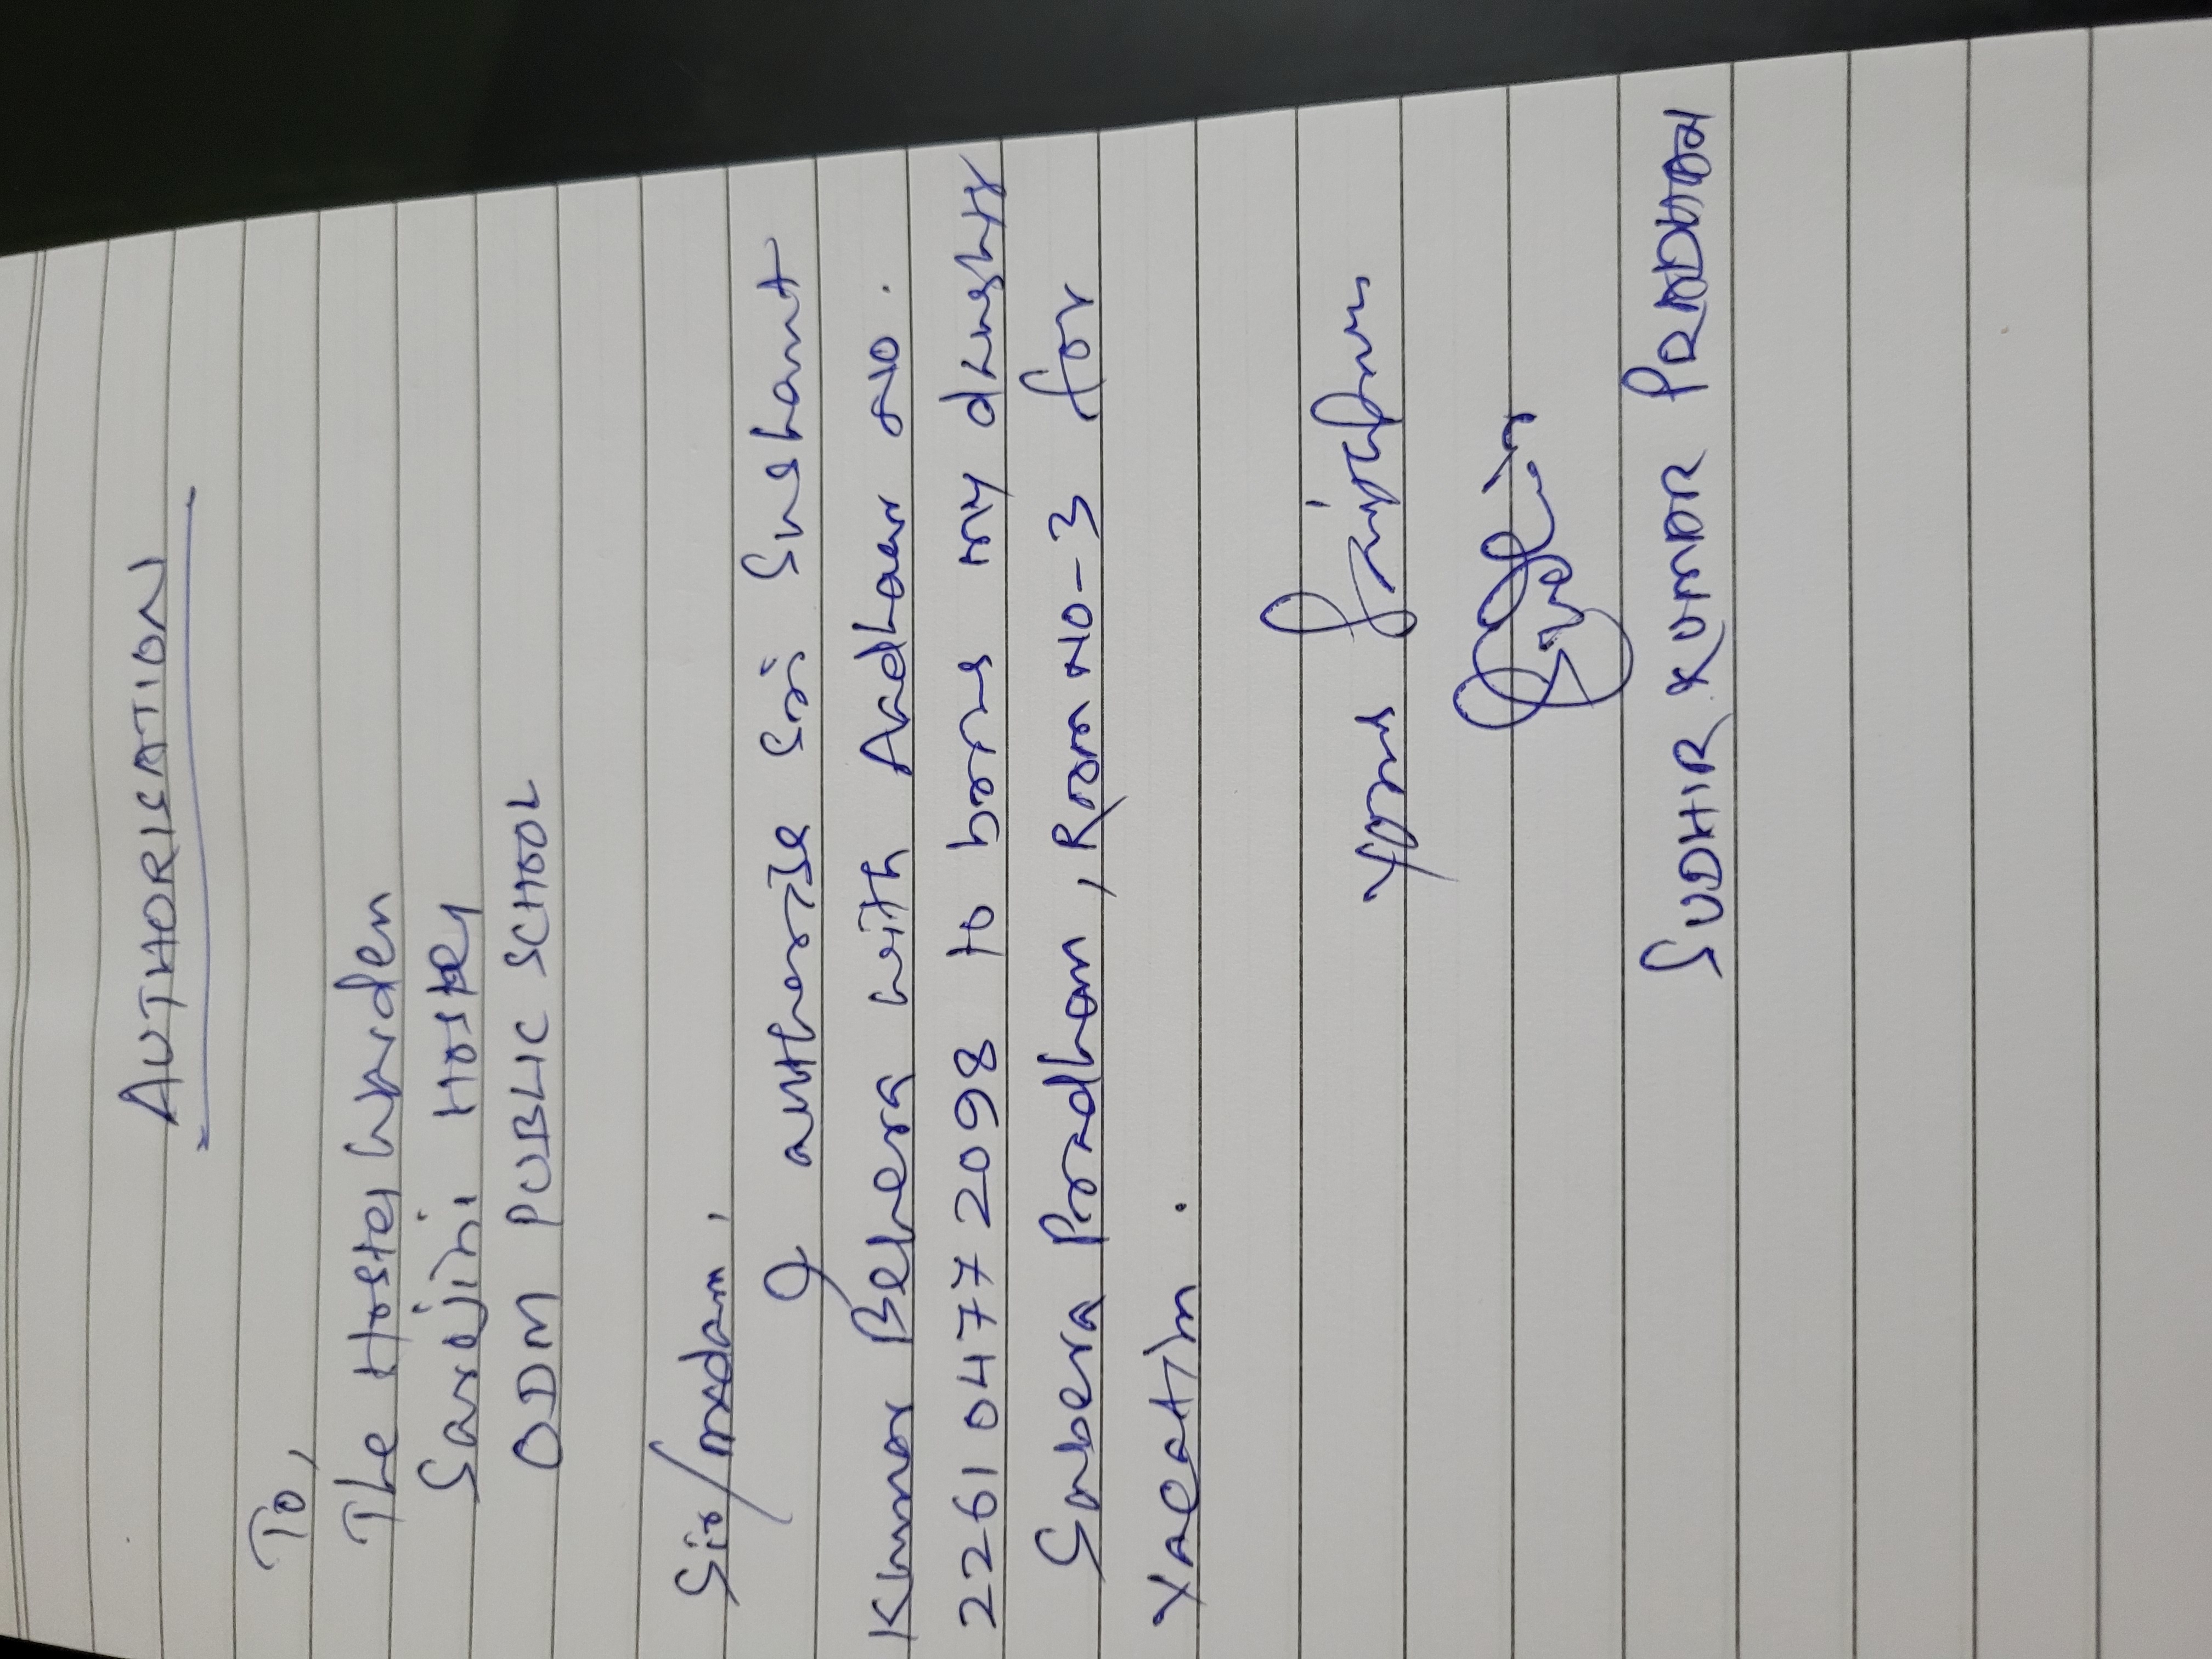 AUTHORISATION
To,
The Hostel Warden
Sarojini Hostel
ODM PUBLIC SCHOOL
Sir/Madam,
I authorize Sri Sushant
Kumar Behera with Aadhaar no.
2261 0477 2098 to bring my daughter
Pradhan, Room NO-3 for
.
your
SUDHIR KUMAR PRADHAN